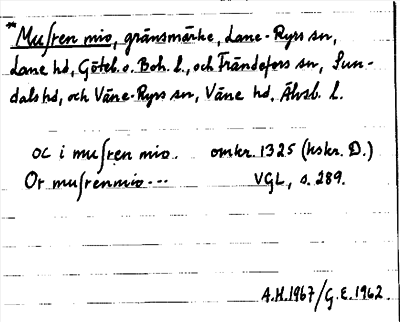 *Muſren mio, gränsmärke, Lane-Ryrs sn,
Lane hd, Göteb. o. Boh. l., och Frändefors sn, Sun-
dals hd, och Väne-Ryrs sn, Väne hd, Älvsb. l.
oc i muſren mio.. omkr. 1325 (hskr. D.)
Or muſrenmio --- VGL, s. 289.
A.H. 1967/G.E. 1962.